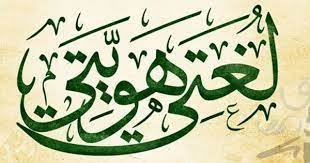 لغتي هويتي